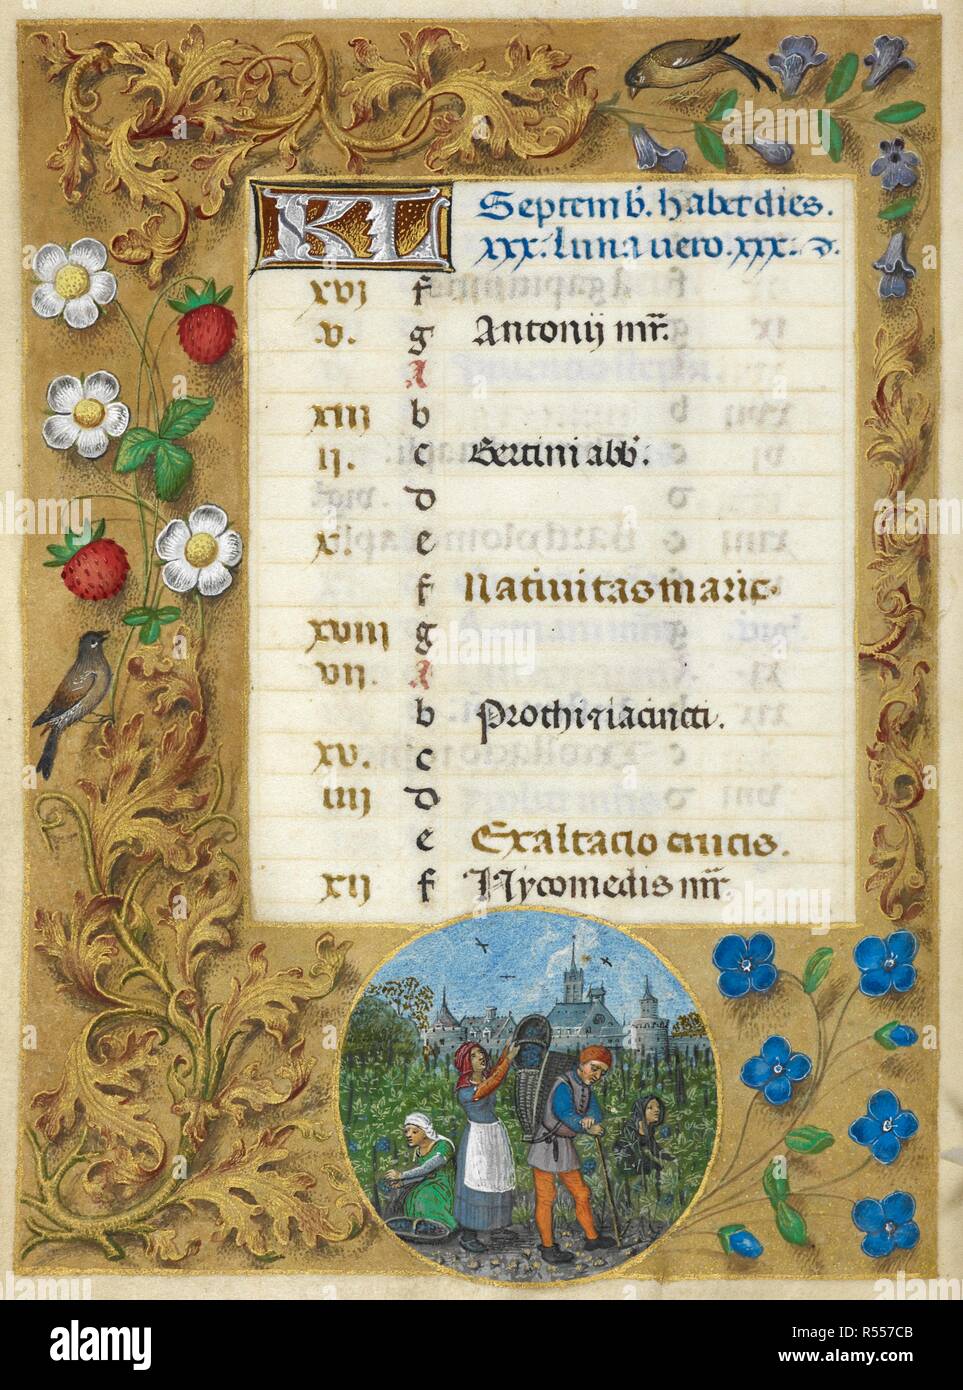 KL Septemb. habet dies.
xxx. Luna vero. xxx. d.
xvj f
v. g Antonij mr.
A
xiij b
ij. c Bertini abb.
d
x. e
f Nativitas marie.
xviij g
vij. A
b Prothi ⁊ iacincti.
xv. c
iiij d
e Exaltacio crucis.
xij f Nycomedis mr.
alamy
alamy
Image ID: R557CB
www.alamy.com